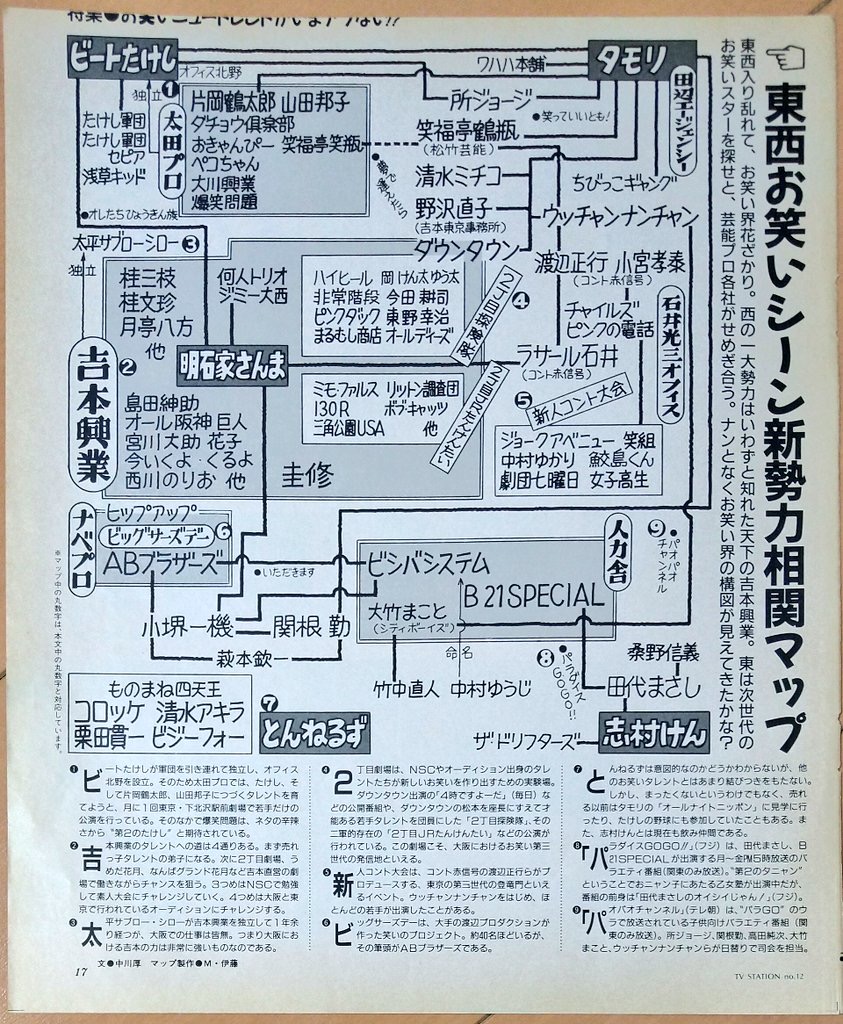 特集●お笑いニュートレンドがいまアブない!!
☜東西お笑いシーン新勢力相関マップ
東西入り乱れて、お笑い界花ざかり。西の一大勢力はいわずと知れた天下の吉本興業。東は次世代の
お笑いスターを探せと、芸能プロ各社がせめぎ合う。ナンとなくお笑い界の構図が見えてきたかな?
ビートたけし
オフィス北野
ワハハ本舗
タモリ
田辺エージェンシー
独立
❶
太田プロ
たけし軍団
たけし軍団
セピア
浅草キッド
片岡鶴太郎 山田邦子
ダチョウ倶楽部
おきゃんぴー 笑福亭笑瓶
ペコちゃん
大川興業
爆笑問題
所ジョージ
●笑っていいとも!
笑福亭鶴瓶
(松竹芸能)
●夢で逢えたら
清水ミチコ
ちびっこギャング
野沢直子
(吉本東京事務所)
ウッチャンナンチャン
ダウンタウン
●オレたちひょうきん族
太平サブロー・シロー❸
独立
吉本興業
❷
桂三枝
桂文珍
月亭八方
他
何人トリオ
ジミー大西
明石家さんま
島田紳助
オール阪神 巨人
宮川大助 花子
今いくよ・くるよ
西川のりお 他
ハイヒール 岡けん太ゆう太
非常階段 今田耕司
ピンクダック 東野幸治
まるむし商店 オールディーズ
2丁目探検隊
❹
ミモ・ファルス リットン調査団
130R ボブ・キャッツ
三角公園USA 他
2丁目JRたんけんたい
圭修
渡辺正行 小宮孝泰
(コント赤信号)
チャイルズ
ピンクの電話
石井光三オフィス
ラサール石井
(コント赤信号)
❺
新人コント大会
ジョークアベニュー 笑組
中村ゆかり 鮫島くん
劇団七曜日 女子高生
ナベプロ
ヒップアップ
ビッグサーズデー❻
ABブラザーズ
●いただきます
人力舎
ビシバシステム
B21SPECIAL
大竹まこと
(シティボーイズ)
❾
●パオパオチャンネル
小堺一機
関根勤
萩本欽一
命名
竹中直人
中村ゆうじ
❽
●パラダイスGOGO!!
桑野信義
田代まさし
ザ・ドリフターズ
志村けん
ものまね四天王
コロッケ 清水アキラ
栗田貫一 ビジーフォー
❼
とんねるず
※マップ中の丸数字は、本文中の丸数字と対応しています。
❶ビートたけしが軍団を引き連れて独立し、オフィス
北野を設立。そのため太田プロでは、たけし、そ
して片岡鶴太郎、山田邦子につづくタレントを育
てようと、月に1回東京・下北沢駅前劇場で若手だけの
公演を行っている。そのなかで爆笑問題は、ネタの辛辣
さから“第2のたけし”と期待されている。
❷吉本興業のタレントへの道は4通りある。まず売れ
っ子タレントの弟子になる。次に2丁目劇場、う
めだ花月、なんばグランド花月など吉本直営の劇
場で働きながらチャンスを狙う。3つめはNSCで勉強
して素人大会にチャレンジしていく。4つめは大阪と東
京で行われているオーディションにチャレンジする。
❸太平サブロー・シローが吉本興業を独立して1年余
り経つが、大阪での仕事は皆無。つまり大阪にお
ける吉本の力は非常に強いものなのである。
❹2丁目劇場は、NSCやオーディション出身のタレ
ントたちが新しいお笑いを作り出すための実験場。
ダウンタウン出演の「4時ですよーだ」(毎日)な
どの公開番組や、ダウンタウンの松本を座長にすえて才
能ある若手タレントを団員にした「2丁目探険隊」、その
二軍的存在の「2丁目JRたんけんたい」などの公演が
行われている。この劇場こそ、大阪におけるお笑い第三
世代の発信地といえる。
❺新人コント大会は、コント赤信号の渡辺正行らがプ
ロデュースする、東京の第三世代の登竜門といえ
るイベント。ウッチャンナンチャンをはじめ、ほ
とんどの若手が出演したことがある。
❻ビッグサーズデーは、大手の渡辺プロダクションが
作った笑いのプロジェクト。約40名ほどいるが、
その筆頭がABブラザーズである。
❼とんねるずは意図的なのかどうかわからないが、他
のお笑いタレントとはあまり結びつきをもたない。
しかし、まったくないというわけでもなく、売れ
る以前はタモリの「オールナイトニッポン」に見学に行
ったり、たけしの野球にも参加していたこともある。ま
た、志村けんとは現在も飲み仲間である。
❽「パラダイスGOGO!!」(フジ)は、田代まさし、B
21SPECIALが出演する月ー金PM5時放送のバ
ラエティ番組(関東のみ放送)。“第2のタニアン”
ということでおニャン子にあたる乙女塾が出演中だが、
番組の前身は「田代まさしのオイシイじゃん!」(フジ)。
❾「パオパオチャンネル」(テレ朝)は、“パラGO”のウ
ラで放送されている子供向けバラエティ番組(関
東のみ放送)。所ジョージ、関根勤、高田純次、大竹
まこと、ウッチャンナンチャンらが日替りで司会を担当。
17 文●中川厚 マップ製作●M・伊藤
TV STATION no.12